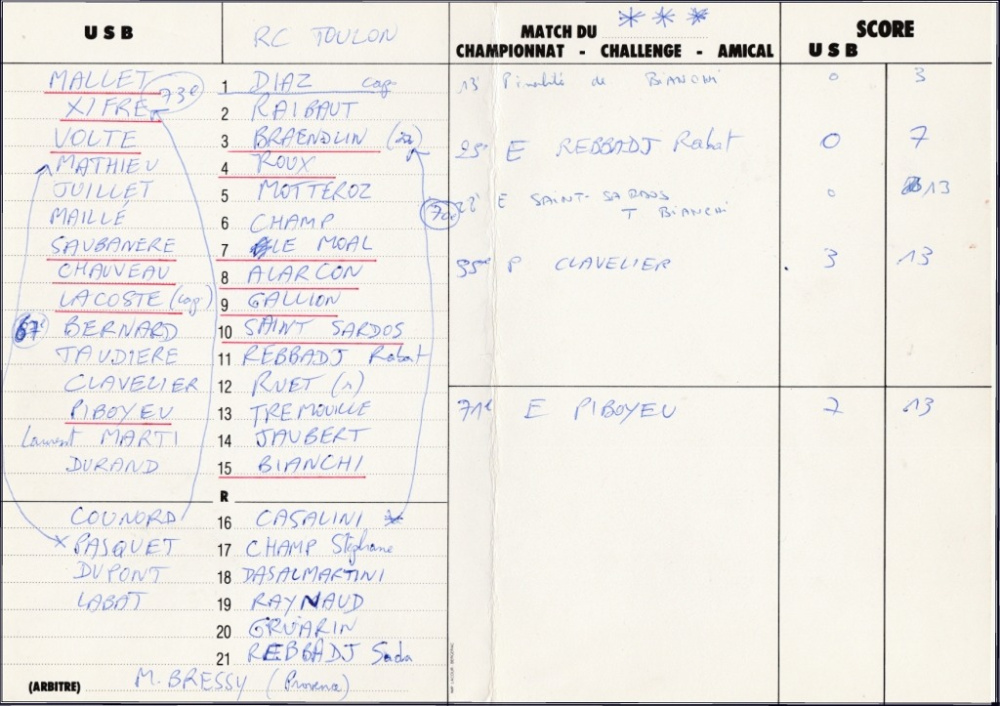 USB RC TOULON
MALLET 1 DIAZ cap
XIFRE 73e 2 RAIBAUT
VOLTE 3 BRAENDLIN
MATHIEU 4 ROUX
JUILLET 5 MOTTEROZ
MAILLÉ 6 CHAMP
SAUBANERE 7 LE MOAL
CHAUVEAU 8 ALARCON
LACOSTE (cap) 9 GALLION
67e BERNARD 10 SAINT SARDOS
TAUDIERE 11 REBBADJ Rabat
CLAVELIER 12 RUET (n)
PIBOYEU 13 TREMOUILLE
Laurent MARTI 14 JAUBERT
DURAND 15 BIANCHI
R
COUNORD 16 CASALINI *
x PASQUET 17 CHAMP Stéphane
DUPONT 18 DASALMARTINI
LABAT 19 RAYNAUD
20 GRUARIN
21 REBBADJ Sada
(ARBITRE) M. BRESSY (Provence)
MATCH DU * * *
CHAMPIONNAT - CHALLENGE - AMICAL
SCORE
USB
13' Pénalité de BIANCHI 0 3
25e E REBBADJ Rabat 0 7
70e
28' E SAINT-SARDOS 0 13
T BIANCHI
35me P CLAVELIER 3 13
71e E PIBOYEU 7 13